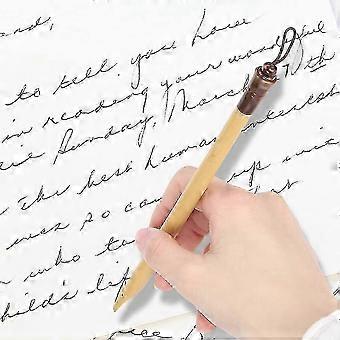 and,
to tell you have
in reading your wonderful
Sunday, March 17th
The best human interest
was so com up with
who to
child's lif
once